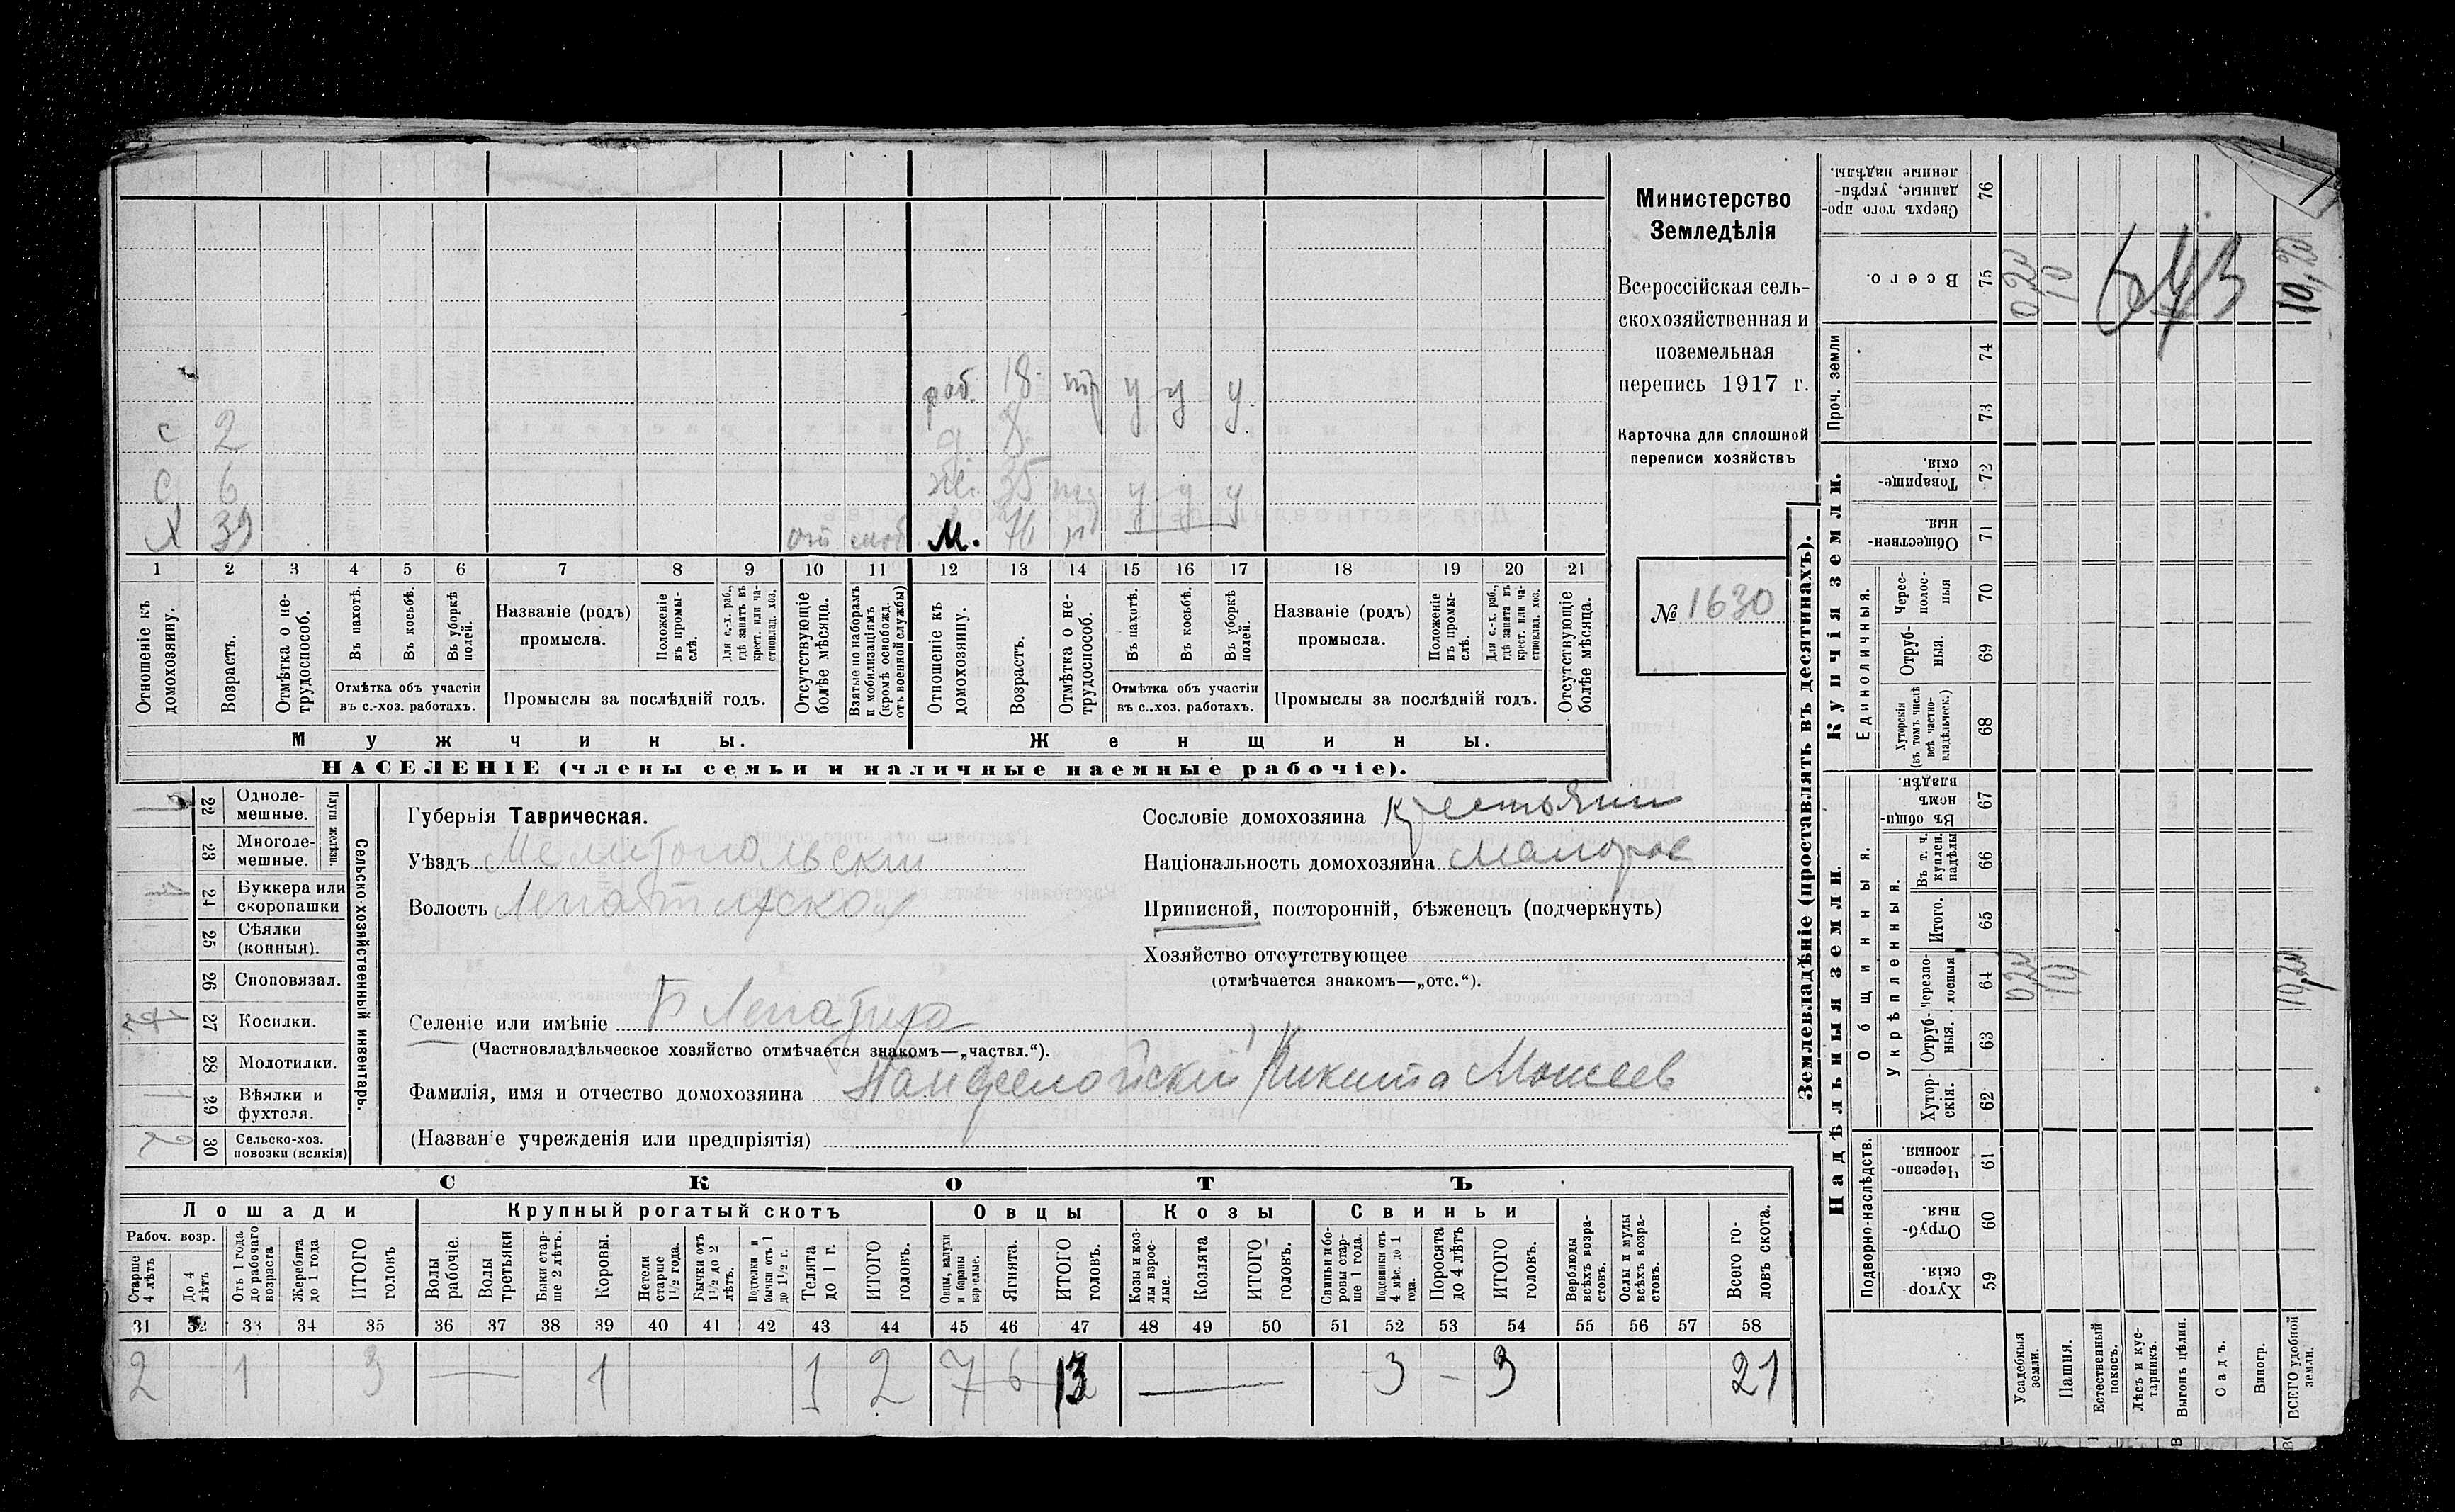 с 2
с 6
Х 39 отс моб
раб. 18 тр у у у
д. 8.
же. 35 у у у
м. 76 н
1 2 3 4 5 6 7 8 9 10 11 12 13 14 15 16 17 18 19 20 21
Отношеніе къ домохозяину.
Возрастъ.
Отмѣтка о не-трудоспособ.
Въ пахотѣ.
Въ косьбѣ.
Въ уборкѣ полей.
Отмѣтка объ участіи
въ с.-хоз. работахъ.
Названіе (родъ)
промысла.
Положеніе въ промы-слѣ.
Для с.-х. раб., гдѣ занятъ въ крест. или ча-стновлад. хоз.
Промыслы за послѣдній годъ.
Отсутствующіе болѣе мѣсяца.
Взятые по наборамъ и мобилизаціямъ (кромѣ освобожд. отъ военной службы)
Отношеніе къ домохозяину.
Возрастъ.
Отмѣтка о не-трудоспособ.
Въ пахотѣ.
Въ косьбѣ.
Въ уборкѣ полей.
Отмѣтка объ участіи
въ с..хоз. работахъ.
Названіе (родъ)
промысла.
Положеніе въ промы-слѣ.
Для с.-х. раб., гдѣ занята въ крест. или ча-стновлад. хоз.
Промыслы за послѣдній годъ.
Отсутствующіе болѣе мѣсяца.
Мужчины.
Женщины.
НАСЕЛЕНІЕ (члены семьи и наличные наемные рабочіе).
Министерство
Земледѣлія
Всероссійская сель-
скохозяйственная и
поземельная
перепись 1917 г.
Карточка для сплошной
переписи хозяйствъ
№ 1630
22 Одноле-мешные.
23 Многоле-мешные.
Плуги желѣзн.
24 Буккера или скоропашки 1
25 Сѣялки (конныя).
26 Сноповязал.
27 Косилки.
28 Молотилки.
29 Вѣялки и фухтеля. 1
30 Сельско-хоз. повозки (всякія) 2
Сельско-хозяйственный инвентарь.
Губернія Таврическая.
Уѣздъ Мелитопольскій
Волость Лепатихской
Селеніе или имѣніе Б Лепатиха
(Частновладѣльческое хозяйство отмѣчается знакомъ—„частвл.“).
Фамилія, имя и отчество домохозяина Никита Моисеев
(Названіе учрежденія или предпріятія)
Сословіе домохозяина Крестьянин
Національность домохозяина малорос
Приписной, посторонній, бѣженецъ (подчеркнуть)
Хозяйство отсутствующее
(отмѣчается знакомъ—„отс.“).
СКОТЪ
Лошади
Крупный рогатый скотъ
Овцы
Козы
Свиньи
Рабоч. возр.
Старше 4 лѣтъ
До 4 лѣтъ
Отъ 1 года до рабочаго возраста
Жеребята до 1 года
ИТОГО головъ
Волы рабочіе.
Волы третьяки
Быки стар-ше 2 лѣтъ.
Коровы.
Нетели старше 1½ года.
Бычки отъ 1½ до 2 лѣтъ.
Подтелки и бычки отъ 1 до 1½ г.
Телята до 1 г.
ИТОГО головъ.
Ягнята.
ИТОГО головъ.
Козы и коз-лы взрос-лые.
Козлята
ИТОГО головъ.
Свиньи и бо-ровы стар-ше 1 года.
Подсвинки отъ 4 мѣс. до 1 года.
Поросята до 4 лѣтъ
ИТОГО головъ.
Верблюды всѣхъ возра-стовъ.
Ослы и мулы всѣхъ возра-стовъ.
Всего го-ловъ скота.
31 32 33 34 35 36 37 38 39 40 41 42 43 44 45 46 47 48 49 50 51 52 53 54 55 56 57 58
2 1 3 — 1 1 2 7 6 13 — 3 – 3 21
Землевладѣніе (проставлять въ десятинахъ).
Надѣльныя земли.
Купчія земли.
Проч. земли
Подворно-наслѣдств.
Общинныя.
Укрѣпленныя.
Единоличныя.
Сверхъ того про-данные, укрѣп-ленные надѣлы. 76
Всего. 75 0,20 10 643 10,20
74
73
Товарище-скія. 72
Обществен-ныя. 71
Черес-полос-ныя 70
Отруб-ныя. 69
Хуторскія (въ томъ числѣ всѣ частно-владѣльческ.) 68
Въ общи-номъ владѣн. 67
Въ т. ч. куплен. надѣлы 66
Итого. 65
Черезпо-лосныя 64 0,20 10 10,20
Отруб-ныя. 63
Хутор-скія. 62
Черезпо-лосныя. 61
Отруб-ныя. 60
Хутор-скія. 59
Усадебныя земли.
Пашня.
Естественный покосъ.
Лѣсъ и кус-тарникъ.
Выгонъ цѣлин.
Садъ.
Виногр.
ВСЕГО удобной земли.